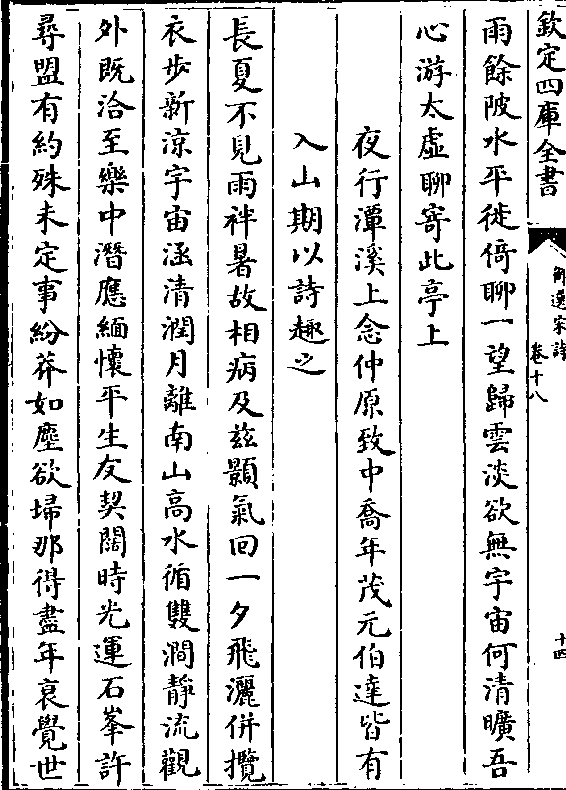 欽定四庫全書
御選宋詩
卷十八
十四
雨餘陂水平徙倚聊一望歸雲淡欲無宇宙何清曠吾
心游太虛聊寄此亭上
夜行潭溪上念仲原致中喬年茂元伯達皆有
入山期以詩趣之
長夏不見雨袢暑故相病及茲顥氣回一夕飛灑併攬
衣步新涼宇宙涵清潤月離南山高水循雙澗靜流觀
外既洽至樂中潛應緬懷平生友契闊時光運石峯許
尋盟有約殊未定事紛莽如塵欲埽那得盡年衰覺世